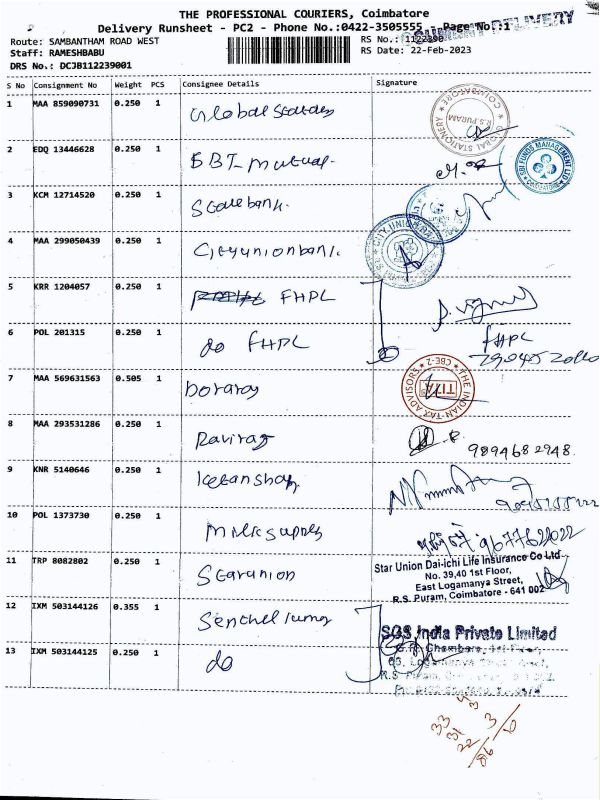 THE PROFESSIONAL COURIERS, Coimbatore
Delivery Runsheet - PC2 - Phone No.:0422-3505555 - Page No:1
DELIVERY
Route: SAMBANTHAM ROAD WEST
RS No.: 1122390
Staff: RAMESHBABU
RS Date: 22-Feb-2023
DRS No.: DCJB112239001
S No Consignment No Weight PCS Consignee Details Signature
1 MAA 859090731 0.250 1
2 EDQ 13446628 0.250 1 SBI mutual.
3 KCM 12714520 0.250 1 State bank.
4 MAA 299050439 0.250 1 Cityunionbank.
5 KRR 1204057 0.250 1 FHPL
6 POL 201315 0.250 1 do FHPL
FHPL
7 MAA 569631563 0.505 1
8 MAA 293531286 0.250 1 Raviraj
9894682948
9 KNR 5140646 0.250 1 ketanshah
10 POL 1373730 0.250 1 Milk supply
9677622022
11 TRP 8082802 0.250 1 Starunion
12 IXM 503144126 0.355 1
13 IXM 503144125 0.250 1 do
R.S. PURAM
SBI FUNDS MANAGEMENT LTD
COIMBATORE
CITY UNION BANK
THE INDIAN TAX ADVISORS
CBE-2
TITA
Star Union Dai-ichi Life Insurance Co Ltd
No. 39,40 1st Floor,
East Logamanya Street,
R.S. Puram, Coimbatore - 641 002
SGS India Private Limited
33
31
22
86
3
10